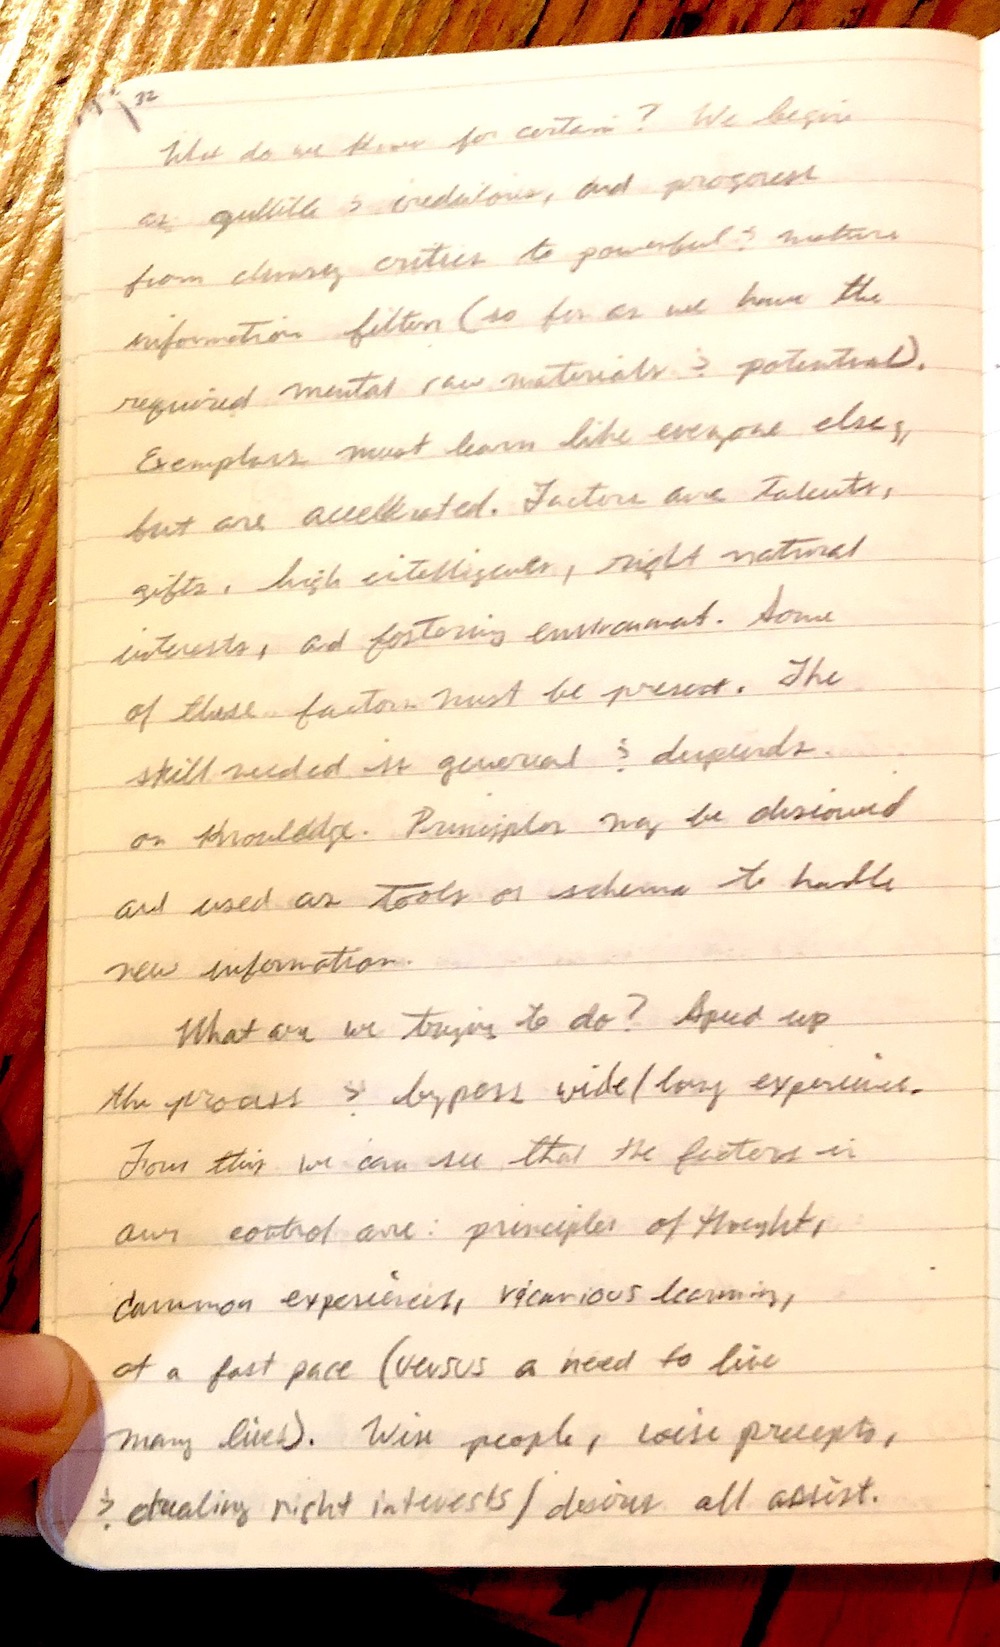 32
What do we know for certain? We begin
as gullible & credulous, and progress
from clumsy critics to powerful & mature
information filters (so far as we have the
required mental raw materials & potential).
Exemplars must learn like everyone else,
but are accellerated. Factors are talents,
gifts, high intelligence, right natural
interests, and fostering environment. Some
of these factors must be present. The
skill needed is general & depends
on knowledge. Principles may be discovered
and used as tools or schema to handle
new information.
What are we trying to do? Speed up
the process & bypass wide/long experience.
From this we can see that the factors in
our control are: principles of thought,
common experiences, vicarious learning,
at a fast pace (versus a need to live
many lives). Wise people, wise precepts,
& right interests/desires all assist.